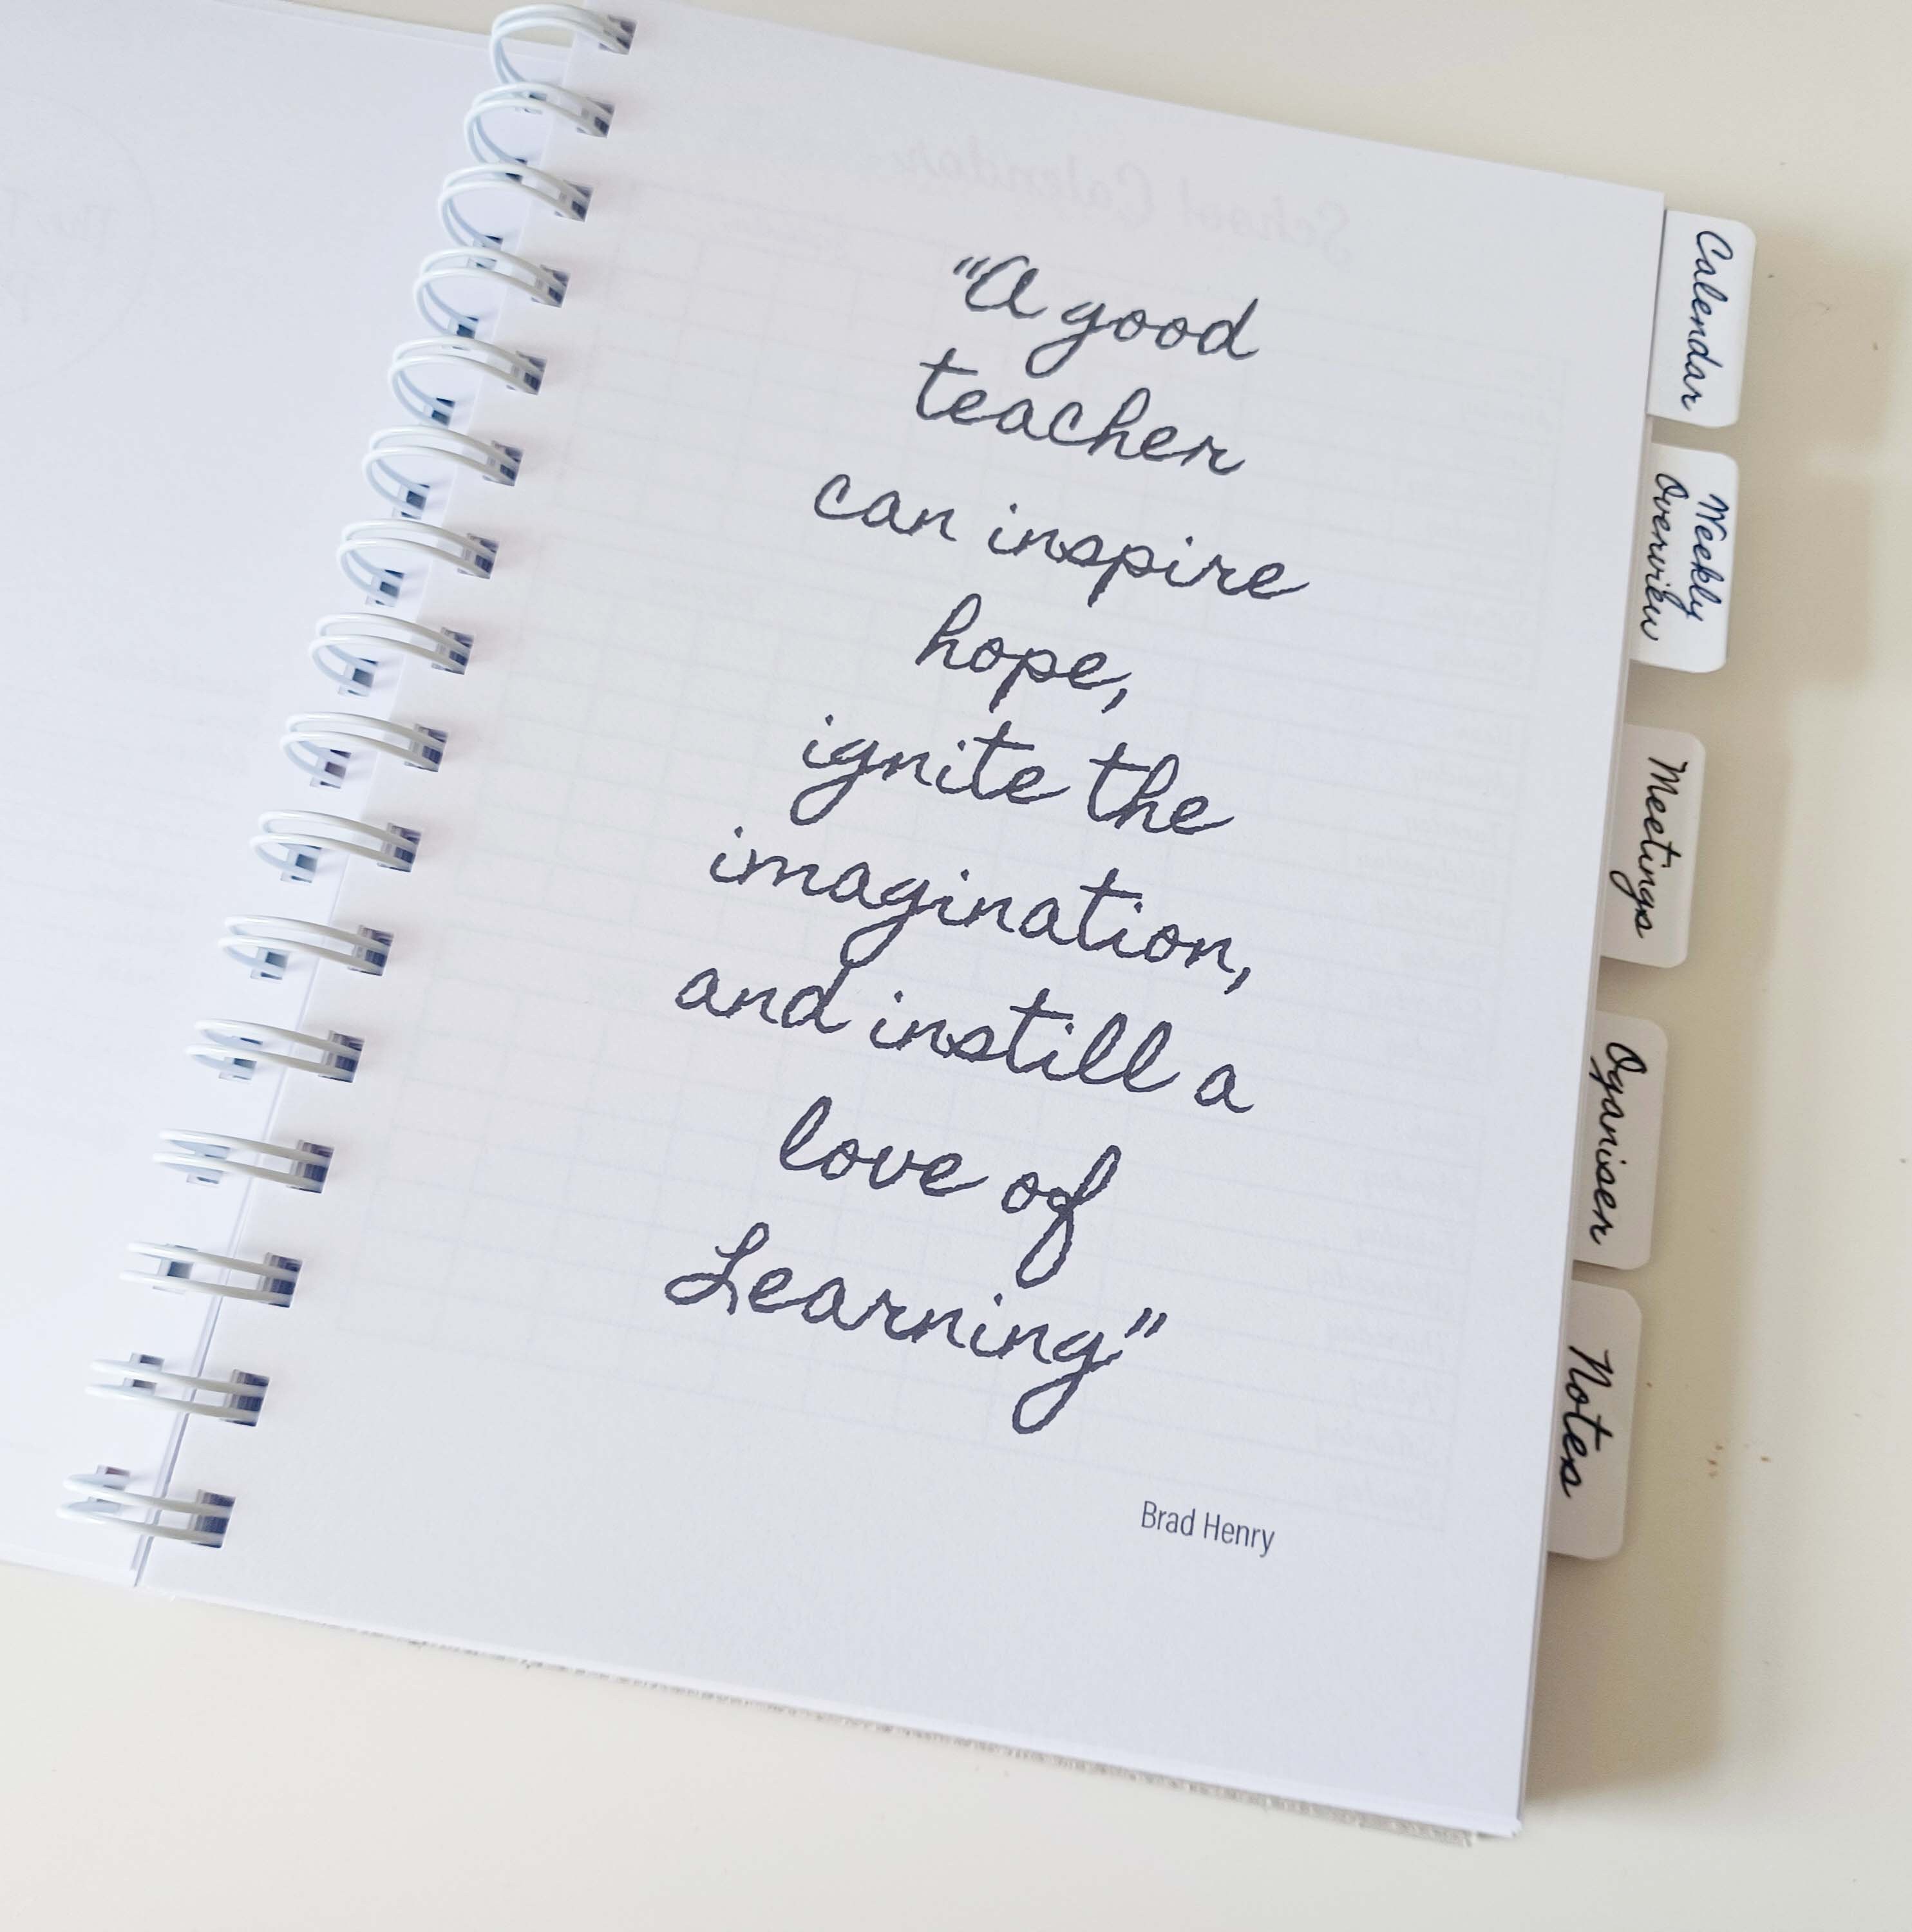 "A good
teacher
can inspire
hope,
ignite the
imagination,
and instill a
love of
Learning"
Brad Henry
Calendar
Weekly
Overview
Meetings
Oganiser
Notes
School Calendar